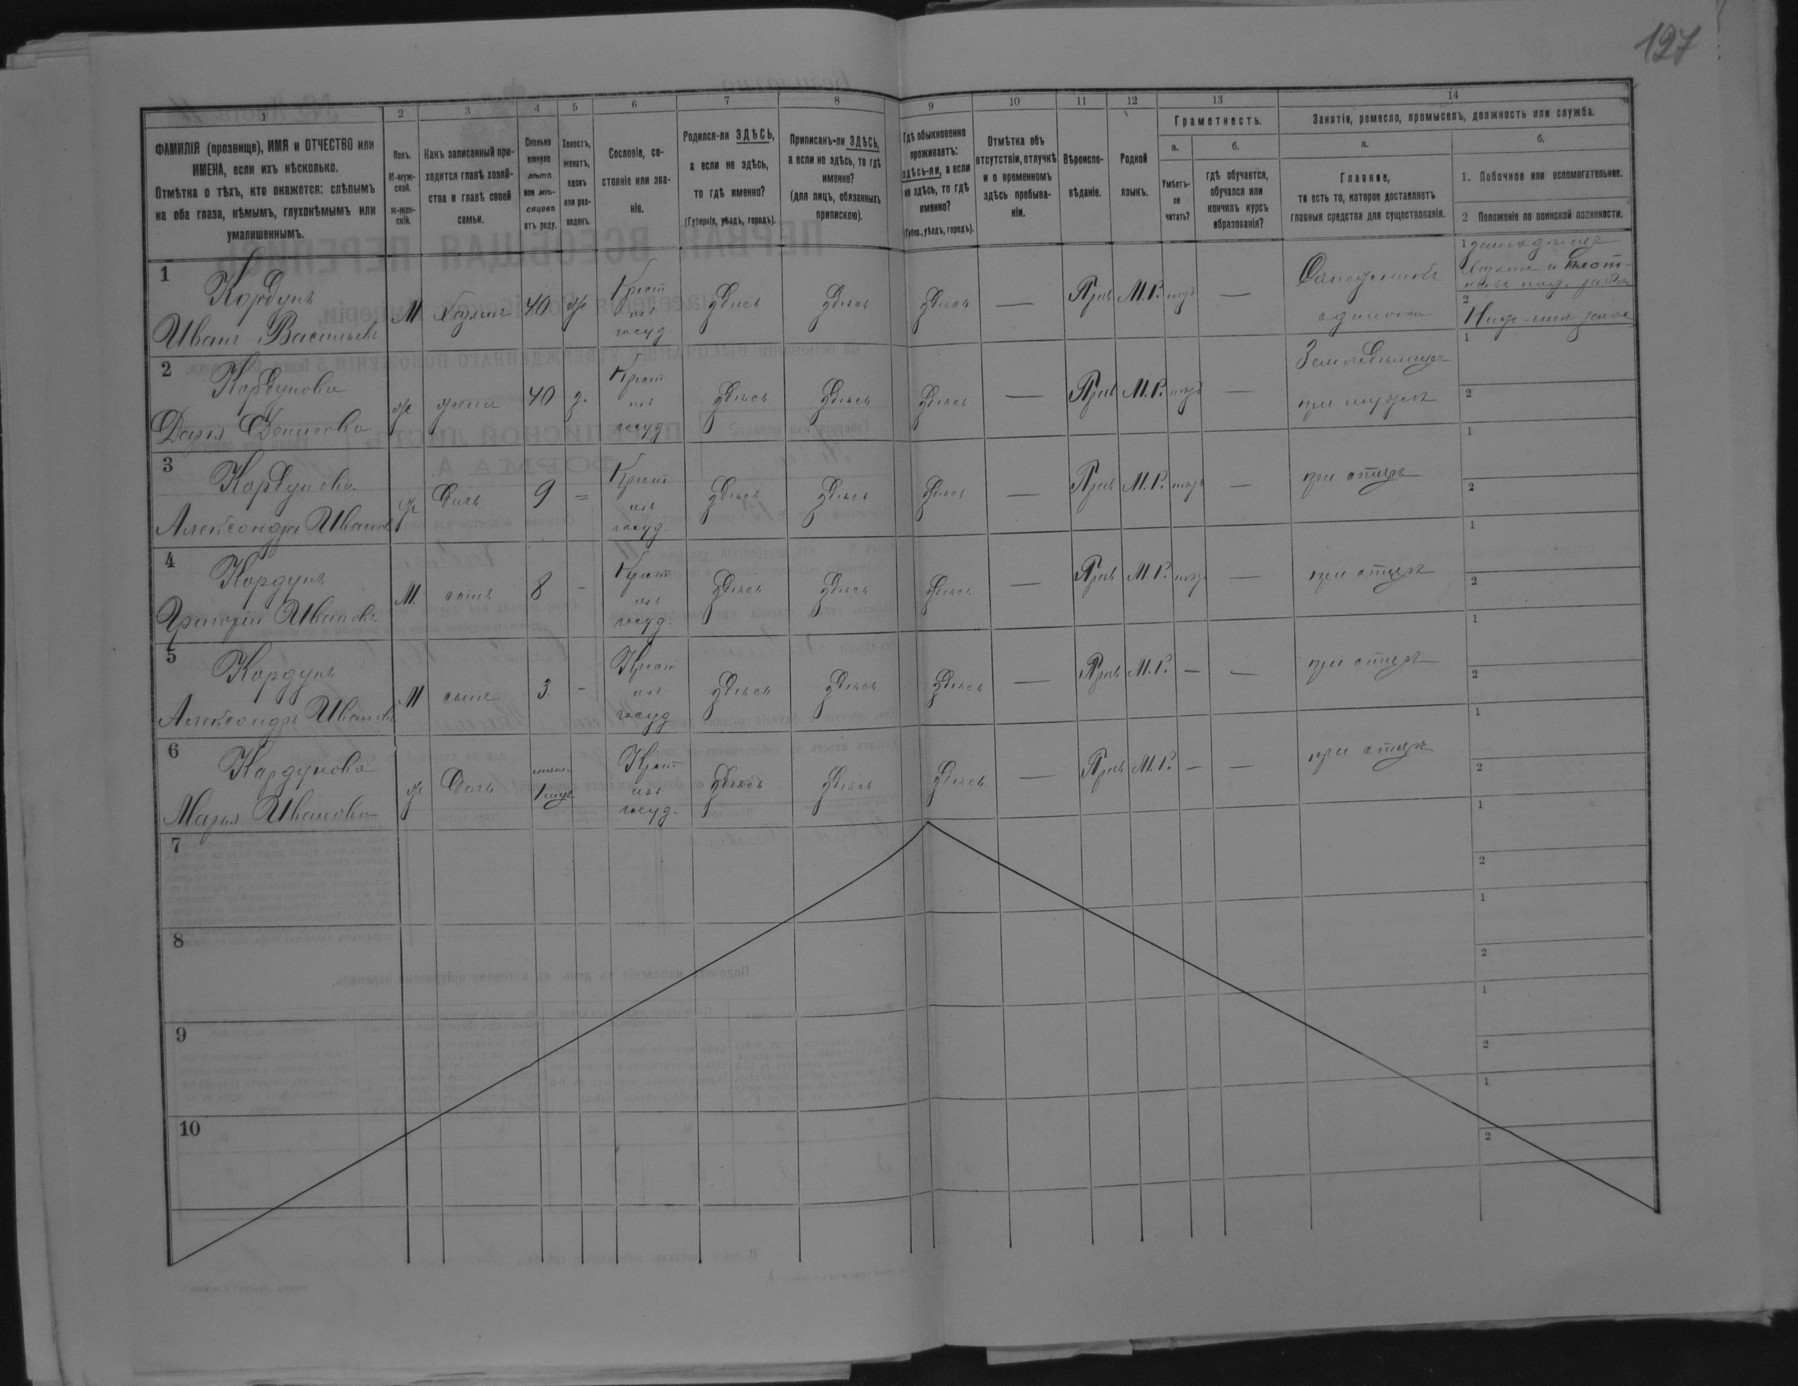 127
1
2
3
4
5
6
7
8
9
10
11
12
13
14
ФАМИЛІЯ (прозвище), ИМЯ и ОТЧЕСТВО или
ИМЕНА, если ихъ нѣсколько.
Отмѣтка о тѣхъ, кто окажется: слѣпымъ
на оба глаза, нѣмымъ, глухонѣмымъ или
умалишеннымъ.
Полъ.
М-муж-
ской.
Ж-жен-
скій.
Какъ записанный при-
ходится главѣ хозяй-
ства и главѣ своей
семьи.
Сколько
минуло
лѣтъ
или мѣ-
сяцевъ
отъ роду.
Холостъ,
женатъ,
вдовъ
или раз-
веденъ.
Сословіе, со-
стояніе или зва-
ніе.
Родился-ли ЗДѢСЬ,
а если не здѣсь,
то гдѣ именно?
(Губернія, уѣздъ, городъ).
Приписанъ-ли ЗДѢСЬ,
а если не здѣсь, то гдѣ
именно?
(для лицъ, обязанныхъ
припискою).
Гдѣ обыкновенно
проживаетъ:
здѣсь-ли, а если
не здѣсь, то гдѣ
именно?
(Губер., уѣздъ, городъ).
Отмѣтка объ
отсутствіи, отлучкѣ
и о временномъ
здѣсь пребыва-
ніи.
Вѣроиспо-
вѣданіе.
Родной
языкъ.
Грамотность.
а.
Умѣетъ-
ли
читать?
б.
гдѣ обучается,
обучался или
кончилъ курсъ
образованія?
Занятіе, ремесло, промыселъ, должность или служба.
а.
Главное,
то есть то, которое доставляетъ
главныя средства для существованія.
б.
1. Побочное или вспомогательное.
2 Положеніе по воинской повинности.
1 Кордунъ
Иванъ Васильевъ М хозяинъ 40 ж Крест изъ госуд. здѣсь здѣсь здѣсь — Прав М.Р. — 1
2
2 Кордунова
Дарья Денисова ж жена 40 з. Крест изъ госуд. здѣсь здѣсь здѣсь — Прав М.Р. — Земледѣлица при мужѣ 1
2
3 Кордунова
Александра Иванов ж Дочь 9 = Крест изъ госуд. здѣсь здѣсь здѣсь — Прав М.Р. — при отцѣ 1
2
4 Кордунъ
Григорій Ивановъ М. сынъ 8 - Крест изъ госуд. здѣсь здѣсь здѣсь — Прав М.Р. — при отцѣ 1
2
5 Кордунъ
Александръ Ивановъ М сынъ 3 - Крест изъ госуд здѣсь здѣсь здѣсь — Прав М.Р. — — при отцѣ 1
2
6 Кордунова
Марья Иванова ж Дочь Крест изъ госуд. здѣсь здѣсь здѣсь — Прав М.Р. — — при отцѣ 1
2
7 1
2
8 1
2
9 1
2
10 1
2